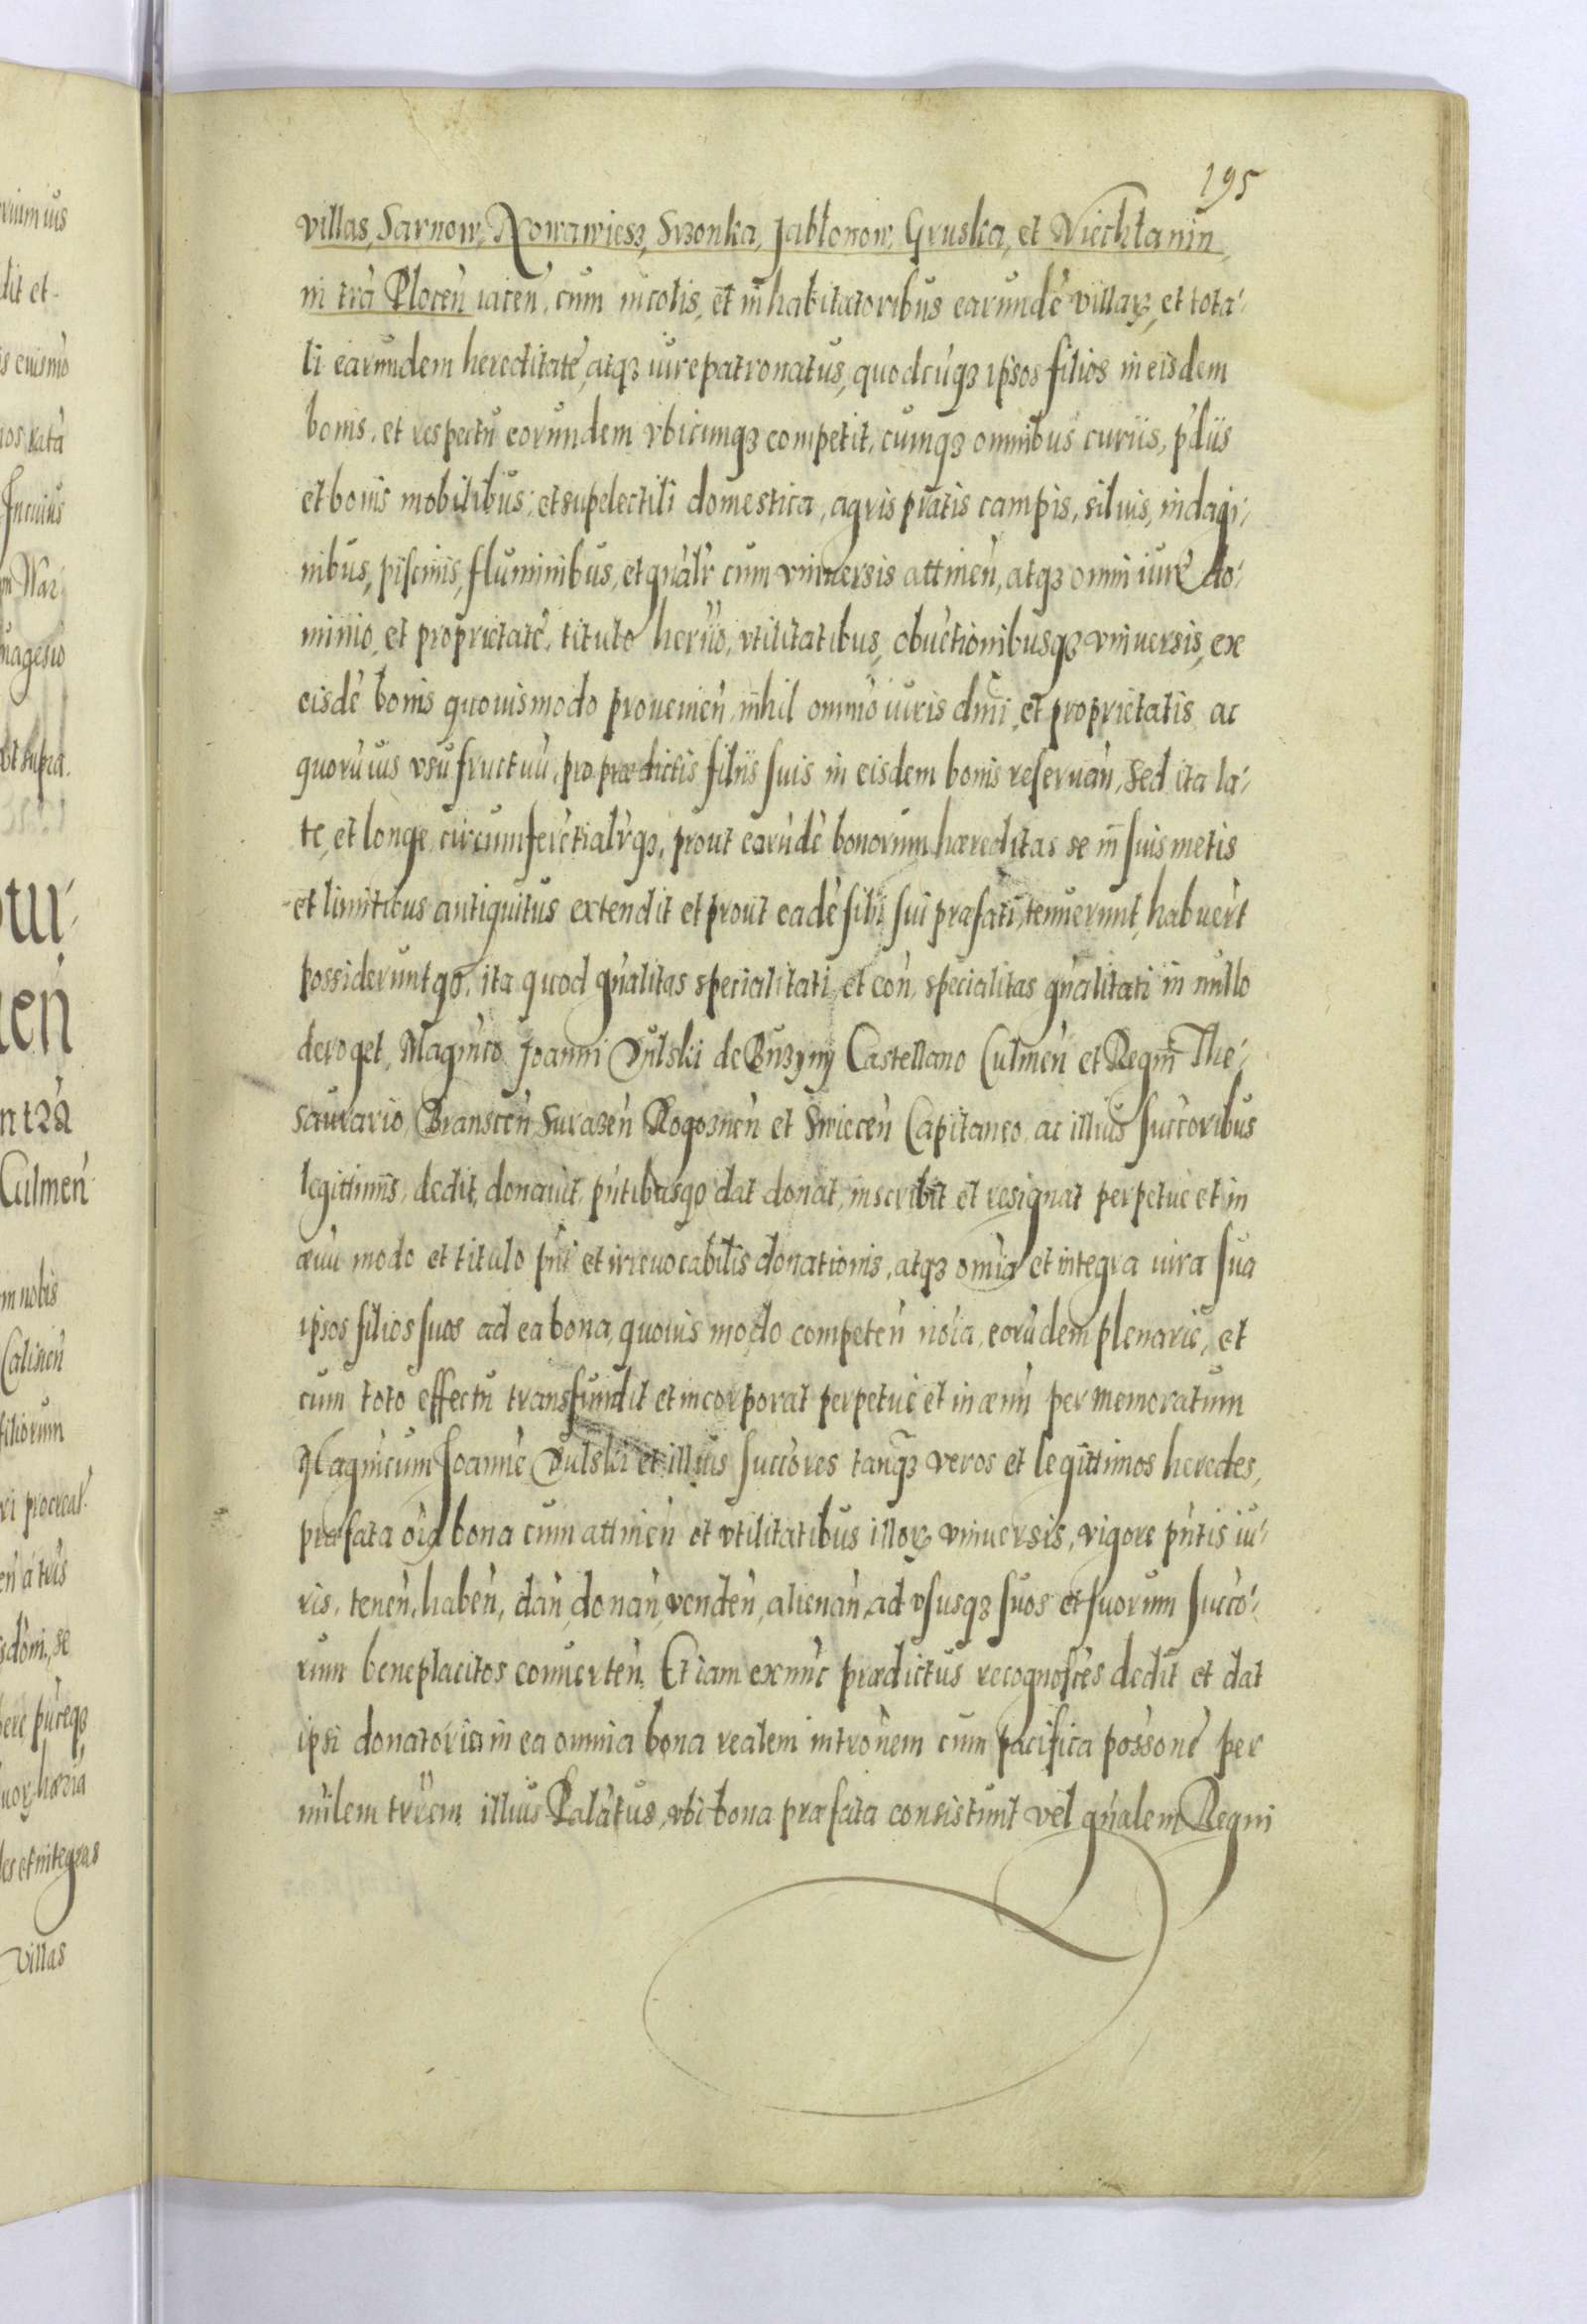 195
villas, Sarnow, Nowawiesz, Srzonka, Jabłonow, Gruska, et Niechłanin,
in trà Plocen̄ iacen̄, cum incolis, et inhabitatoribus earundē villarꝫ, et tota-
li earundem hereditatē, atqꝫ iure patronatus, quodcūqꝫ ipsos filios in eisdem
bonis, et respectu eorundem vbicunqꝫ competit, cumqꝫ omnibus curiis, pdiis
et bonis mobilibus, et supelectili domestica, agris pratis campis, siluis, indagi-
nibus, piscinis, fluminibus, et gnālr cum vniuersis attinen̄, atqꝫ omni iurē do-
minio, et proprietatē, titulo heriio, vtilitatibus, obuētionibusqꝫ vniuersis, ex
eisdē bonis quouismodo prouenien̄, nihil omnīo iuris dn̄ii, et proprietatis ac
quorū ius vsufructuū, pro prædictis filiis suis in eisdem bonis reseruan̄, sed ita la-
te, et longe, circumferētialrqꝫ, prout earūdē bonorum hæreditas se in suis metis
et limitibus antiquitus extendit et prout eadē filii sui præfati, tenuerunt, habuert
possideruntqꝫ, ita quod gnālitas specialitati, et con̄, specialitas gnālitati in nullo
deroget, Magn̄co Joanni Dulski de Buzyny Castellano Culmen̄ et Regni The-
saurario, Branscen̄, Surazen̄ Rogoznen̄ et Swiecen̄ Capitaneo, ac illius succoribus
legittimis, dedit, donauit, pn̄tibusqꝫ dat donat, inscribit et resignat perpetue et in
æuū modo et titulo pn̄i et irreuocabilis donationis, atqꝫ omīa et integra iura sua
ipsos filios suos ad ea bona, quouis modo competen̄ nōia, eorūdem plenariē, et
cum toto effectu transfundit et incorporat perpetuē et in æuū per memoratum
Magn̄icum Joannē Dulski et illius succōres tanqꝫ veros et legittimos heredes,
præfata oīa bona cum attinen̄ et vtilitatibus illorꝫ vniuersis, vigore pn̄tis iu-
ris, tenen̄, haben̄, dan̄, donan̄, venden̄, alienan̄, ad vsusqꝫ suos et suorum succō-
rum beneplacitos conuerten̄. Et iam exnūc prædictus recognoscēs dedit et dat
ipsi donatorio in ea omnia bona realem intrōnem cum pacifica possonē per
mīlem trrem illius Palātus, vbi bona præfata consistunt vel gnālem Regni